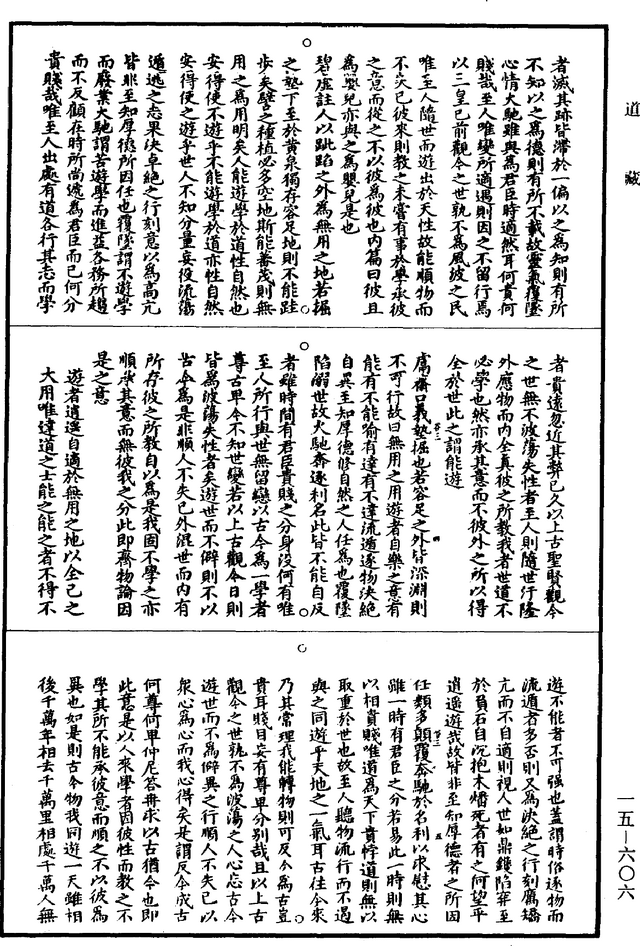 道藏
者滅其跡皆滯於一偏以之為知則有所
不知以之為德則有所不載故靈氣覆墜
心情大馳雖與為君臣時適然耳何貴何
賤哉至人唯變所適遇則因之不留行焉
以三皇已前觀今之世孰不為風波之民
唯至人隨世而遊出於天性故能順物而
不失已彼來則教之未嘗有事於學承彼
之意而從之不以彼為彼也內篇曰彼且
為嬰兒亦與之為嬰兒是也
碧虛註人以跐蹈之外為無用之地若掘
之墊下至於黃泉獨存容足地則不能跬
步矣譬之種植必多空地斯能蕃茂則無
用之為用明矣人能遊學於道性自然也
安得使不遊乎不能遊學於道亦性自然
安得使之遊乎世人不知分量妄役流蕩
遁逃之志果決卓絕之行刻意以為高亢
皆非至知厚德所因任也覆墜謂不遊學
而廢業大馳謂苦遊學而進益各務所趨
而不反顧在時所尚遞為君臣而已何分
貴賤哉唯至人出處有道各行其志而學
者貴遠忽近其弊已久以上古聖賢觀今
之世無不波蕩失性者至人則隨世汙隆
外應物而內全真彼之所教我者世道不
必學也然亦承其意而不彼外之所以得
全於世此之謂能遊
鬳齋口義墊掘也若容足之外皆深淵則
不可行故曰無用之用遊者自樂之意有
能有不能喻有達有不達流遁逐物決絕
自異至知厚德修自然之人任為也覆墜
陷溺世故火馳奔逐利名此皆不能自反
者雖時間有君臣貴賤之分身沒何有唯
至人所行與世無留戀以古今為一學者
尊古卑今不知世變若以上古觀今日則
皆為波蕩失性者矣遊世而不僻則不以
古今為是非順人不失已外混世而內有
所存彼之所教自以為是我固不學之亦
順承其意而無彼我之分此即齊物論因
是之意
遊者逍遙自適於無用之地以全己之
大用唯達道之士能之能之者不得不
遊不能者不可強也蓋謂時俗逐物而
流遁者多否則又為決絕之行刻厲矯
亢而不自適則視人世如鼎鑊陷穽至
於負石自沉抱木燔死者有之何望乎
逍遙遊哉故皆非至知厚德者之所因
任類多顛覆奔馳於名利以求慰其心
雖一時有君臣之分若易此一時則無
以相賁賤唯道為天下貴悖道則無以
取重於世也故至人聽物流行而不遏
與之同遊乎天地之一氣耳古往今來
乃其常理我能轉物則可反今為古豈
貴耳賤目妄有尊卑分別哉且以上古
觀今之世孰不為波蕩之人心忘古今
遊世而不為僻異之行順人不失已以
衆心為心而我心得矣是謂反今成古
何尊何卑仲尼答冉求以古猶今也即
此意是以人來學者因彼性而教之不
學其所不能承彼意而順之不以彼為
異也如是則古今物我同遊一天雖相
後千萬年相去千萬里相處千萬人無
一五—六〇六